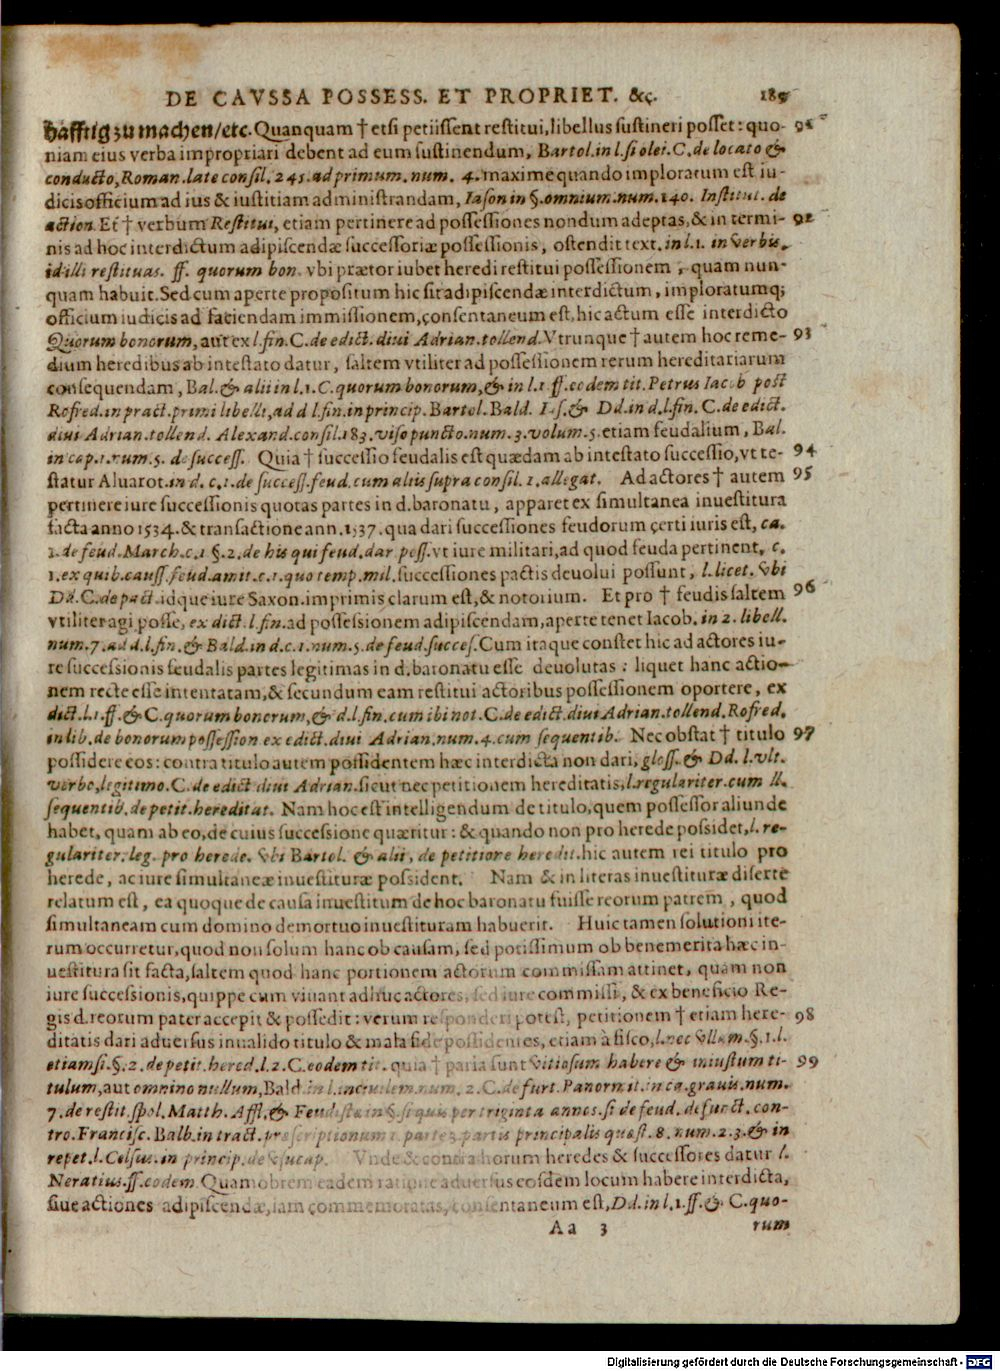 DE CAVSSA POSSESS. ET PROPRIET. &c. 189
häfftig zu machen/etc. Quanquam † etsi petiissent restitui, libellus sustineri posset: quo- 91
niam eius verba impropriari debent ad eum sustinendum, Bartol. in l. si olei. C. de locato &
conducto, Roman. late consil. 245. ad primum. num. 4. maxime quando imploratum est iu-
dicis officium ad ius & iustitiam administrandam, Iason in §. omnium. num. 140. Institut. de
action. Et † verbum Restitui, etiam pertinere ad possessiones nondum adeptas, & in termi- 92
nis ad hoc interdictum adipiscendæ successoriæ possessionis, ostendit text. in l. 1. in verbis,
id illi restituas. ff. quorum bon. vbi prætor iubet heredi restitui possessionem, quam nun-
quam habuit. Sed cum aperte propositum hic sit adipiscendæ interdictum, imploratumq;
officium iudicis ad faciendam immissionem, consentaneum est, hic actum esse interdicto
Quorum bonorum, aut ex l. fin. C. de edict. diui Adrian. tollend. Vtrunque † autem hoc reme- 93
dium heredibus ab intestato datur, saltem vtiliter ad possessionem rerum hereditariarum
consequendam, Bal. & alii in l. 1. C. quorum bonorum, & in l. 1 ff. eodem tit. Petrus Iacob post
Rofred. in pract. primi libelli, ad d l. fin. in princip. Bartol. Bald. Ias. & Dd. in d. l. fin. C. de edict.
diui Adrian. tollend. Alexand. consil. 183. viso puncto. num. 3. volum. 5. etiam feudalium, Bal.
in cap. 1. num. 5. de success. Quia † successio feudalis est quædam ab intestato successio, vt te- 94
statur Aluarot. in d. c. 1. de success. feud. cum aliis supra consil. 1. allegat. Ad actores † autem 95
pertinere iure successionis quotas partes in d. baronatu, apparet ex simultanea inuestitura
facta anno 1534. & transactione ann. 1537. qua dari successiones feudorum certi iuris est, ca.
1. de feud. March. c. 1 §. 2. de his qui feud. dar poss. vt iure militari, ad quod feuda pertinent, c.
1. ex quib. causs. feud. amit. c. 1. quo temp. mil. successiones pactis deuolui possunt, l. licet. vbi
Dd. C. de pact. idque iure Saxon. imprimis clarum est, & notorium. Et pro † feudis saltem 96
vtiliter agi posse, ex dict. l. fin. ad possessionem adipiscendam, aperte tenet Iacob. in 2. libell.
num. 7. ad d. l. fin. & Bald. in d. c. 1. num. 5. de feud. succes. Cum itaque constet hic ad actores iu-
re successionis feudalis partes legitimas in d. baronatu esse deuolutas: liquet hanc actio-
nem recte esse intentatam, & secundum eam restitui actoribus possessionem oportere, ex
dict. l. 1. ff. & C. quorum bonorum, & d. l. fin. cum ibi not. C. de edict. diui Adrian. tollend. Rofred.
in lib. de bonorum possession ex edict. diui Adrian. num. 4. cum sequentib. Nec obstat † titulo 97
possidere eos: contra titulo autem possidentem hæc interdicta non dari, gloss. & Dd. l. vlt.
verbo, legitimo. C. de edict diui Adrian. sicut nec petitionem hereditatis, l. regulariter. cum ll.
sequentib. de petit. hereditat. Nam hoc est intelligendum de titulo, quem possessor aliunde
habet, quam ab eo, de cuius successione quæritur: & quando non pro herede possidet, l. re-
gulariter. leg. pro herede. vbi Bartol. & alii, de petitione heredit. hic autem rei titulo pro
herede, ac iure simultaneæ inuestituræ possident. Nam & in literas inuestituræ diserte
relatum est, ea quoque de causa inuestitum de hoc baronatu fuisse reorum patrem, quod
simultaneam cum domino demortuo inuestituram habuerit. Huic tamen solutioni ite-
rum occurretur, quod non solum hanc ob causam, sed potissimum ob benemerita hæc in-
uestitura sit facta, saltem quod hanc portionem actorum commissam attinet, quam non
iure successionis, quippe cum viuant adhuc actores, sed iure commissi, & ex beneficio Re-
gis d. reorum pater accepit & possedit: verum responderi potest, petitionem † etiam here- 98
ditatis dari aduersus inualido titulo & mala fide possidentes, etiam à fisco, l. nec vllam. §. 1. l.
etiamsi. §. 2. de petit. hered. l. 2. C. eodem tit. quia † paria sunt vitiosum habere & iniustum ti- 99
tulum, aut omnino nullum, Bald. in l. inciuilem. num. 2. C. de furt. Panormit. in ca. grauis. num.
7. de restit. spol. Matth. Affl. & Feudistæ in §. si quis per triginta annos. si de feud. defunct. con-
tro. Francisc. Balb. in tract. præscriptionum 1. parte 3. partis principalis quæst. 8. num. 2. 3. & in
repet. l. Celsus. in princip. de vsucap. Vnde & contra horum heredes & successores datur l.
Neratius. ff. eodem. Quamobrem eadem ratione aduersus eosdem locum habere interdicta,
siue actiones adipiscendæ, iam commemoratas, consentaneum est, Dd. in l. 1. ff. & C. quo-
Aa 3 rum
Digitalisierung gefördert durch die Deutsche Forschungsgemeinschaft - DFG